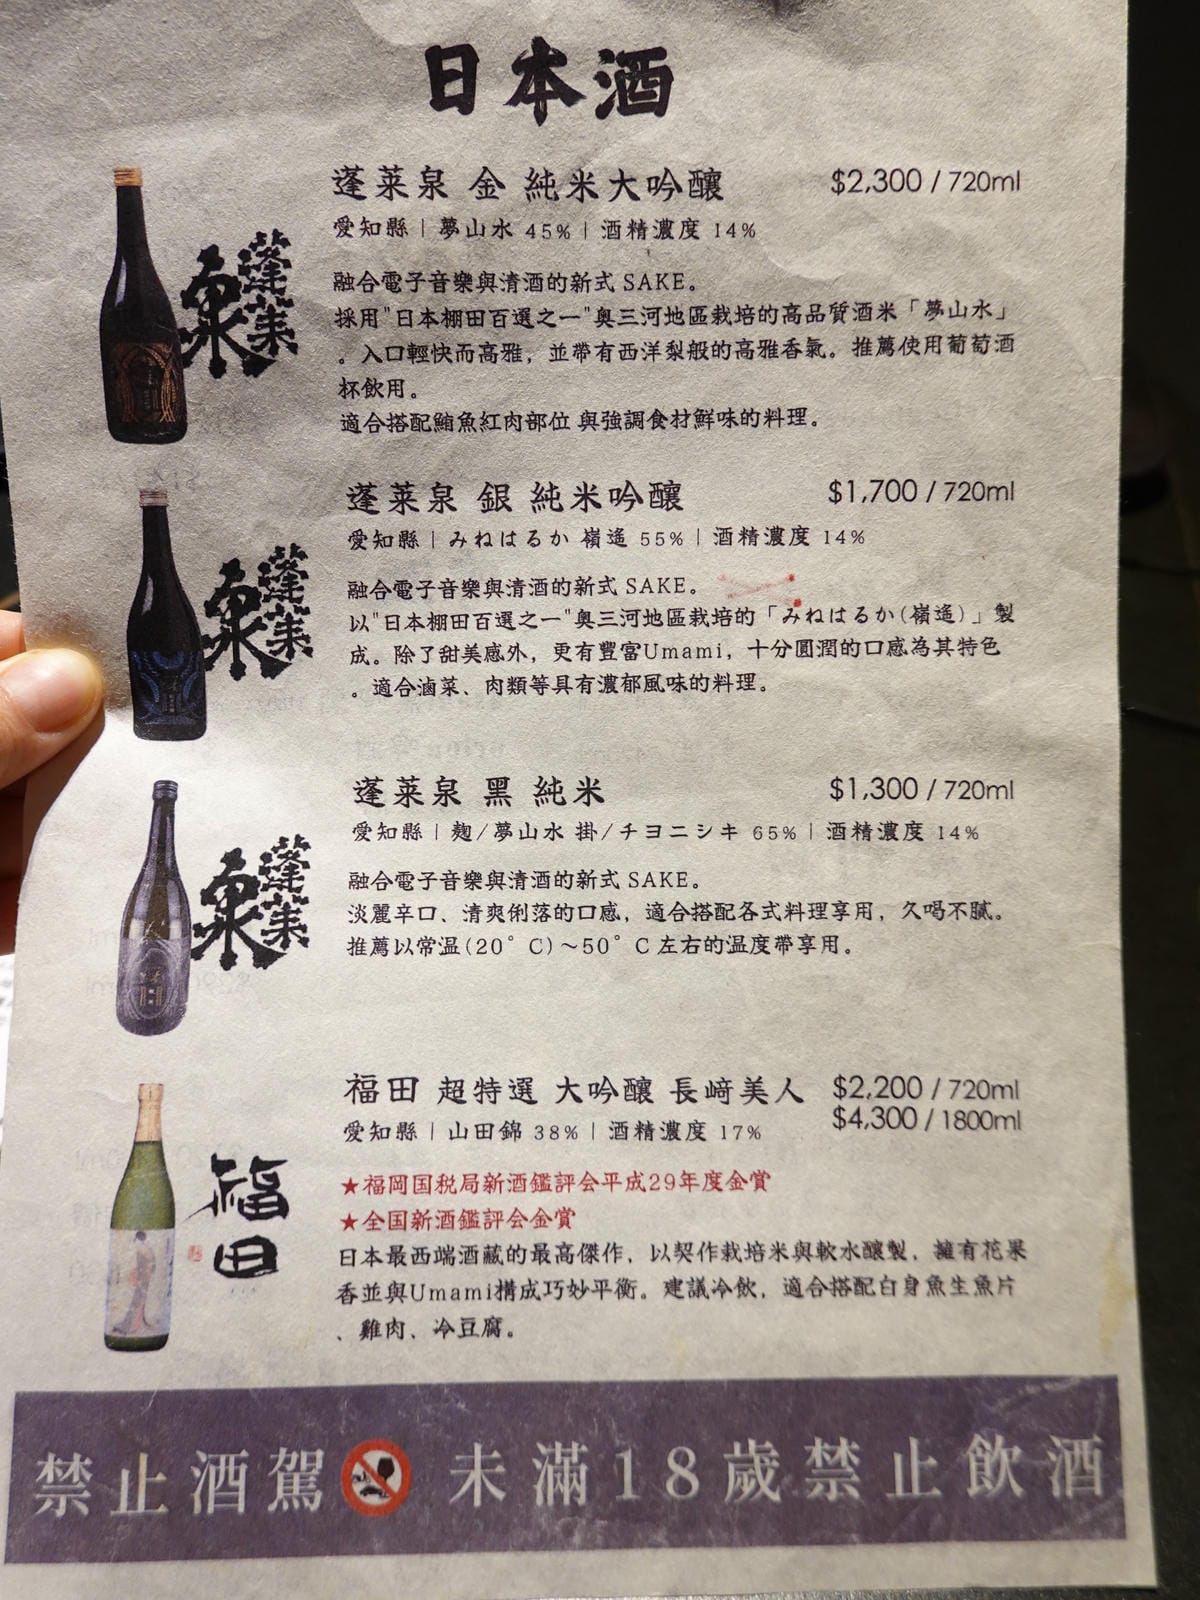 日本酒
蓬莱泉 金 純米大吟釀 $2,300 / 720ml
愛知縣 | 夢山水 45% | 酒精濃度 14%
蓬莱泉
融合電子音樂與清酒的新式 SAKE。
採用"日本棚田百選之一"奧三河地區栽培的高品質酒米「夢山水」
。入口輕快而高雅，並帶有西洋梨般的高雅香氣。推薦使用葡萄酒
杯飲用。
適合搭配鮪魚紅肉部位 與強調食材鮮味的料理。
蓬莱泉 銀 純米吟釀 $1,700 / 720ml
愛知縣 | みねはるか 嶺遙 55% | 酒精濃度 14%
蓬莱泉
融合電子音樂與清酒的新式 SAKE。
以"日本棚田百選之一"奧三河地區栽培的「みねはるか(嶺遙)」製
成。除了甜美感外，更有豐富Umami，十分圓潤的口感為其特色
。適合滷菜、肉類等具有濃郁風味的料理。
蓬莱泉 黑 純米 $1,300 / 720ml
愛知縣 | 麹/夢山水 掛/チヨニシキ 65% | 酒精濃度 14%
蓬莱泉
融合電子音樂與清酒的新式 SAKE。
淡麗辛口、清爽俐落的口感，適合搭配各式料理享用，久喝不膩。
推薦以常温(20°C)～50°C 左右的温度帶享用。
福田 超特選 大吟釀 長崎美人 $2,200 / 720ml
$4,300 / 1800ml
愛知縣 | 山田錦 38% | 酒精濃度 17%
福田
★福岡国税局新酒鑑評会平成29年度金賞
★全国新酒鑑評会金賞
日本最西端酒藏的最高傑作，以契作栽培米與軟水釀製，擁有花果
香並與Umami構成巧妙平衡。建議冷飲，適合搭配白身魚生魚片
、雞肉、冷豆腐。
禁止酒駕 未滿18歲禁止飲酒